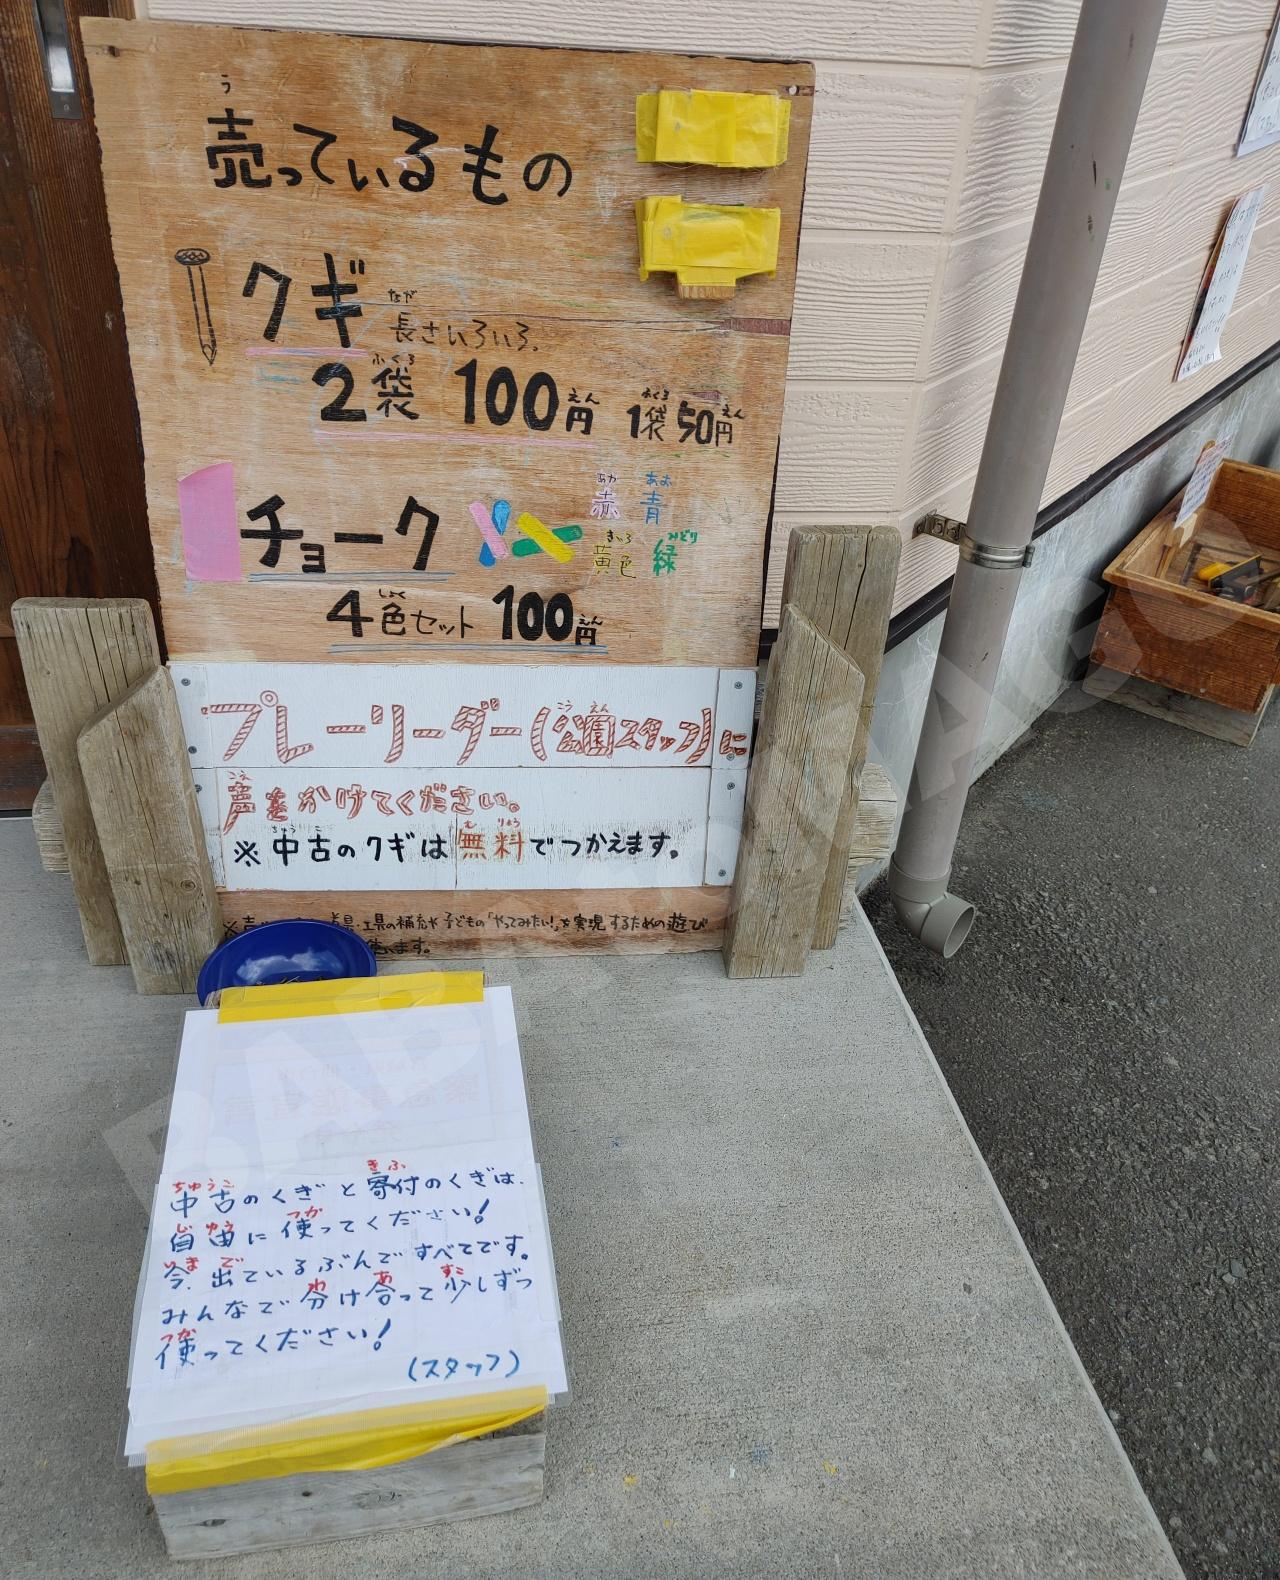 売っているもの
クギ 長さいろいろ。
2袋 100円 1袋 50円
チョーク 赤 青
黄色 緑
4色セット 100円
プレーリーダー(公園スタッフ)に
声をかけてください。
※中古のクギは無料でつかえます。
工具の補充や子どもの「やってみたい!」を実現するための遊び
います。
中古のくぎと寄付のくぎは、
自由に使ってください!
今、出ているぶんですべてです。
みんなで分け合って少しずつ
使ってください!
(スタッフ)